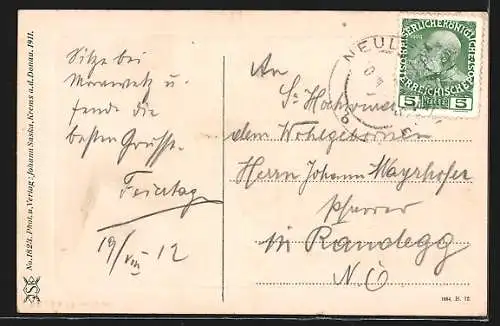 No. 1823. Phot. u. Verlag: Johann Saska, Krems a. d. Donau. 1911.
Sitze bei
Morawetz u.
sende die
besten Grüsse.
Feiertag
19/VIII 12
NEUL
KAISERLICHE KÖNIGLICHE
ÖSTERREICHISCHE POST
5 HELLER 5
An
Sr Hochwürden
dem Wohlgebornen
Herrn Johann Mayrhofer
Pfarrer
in Randegg
N. Ö.